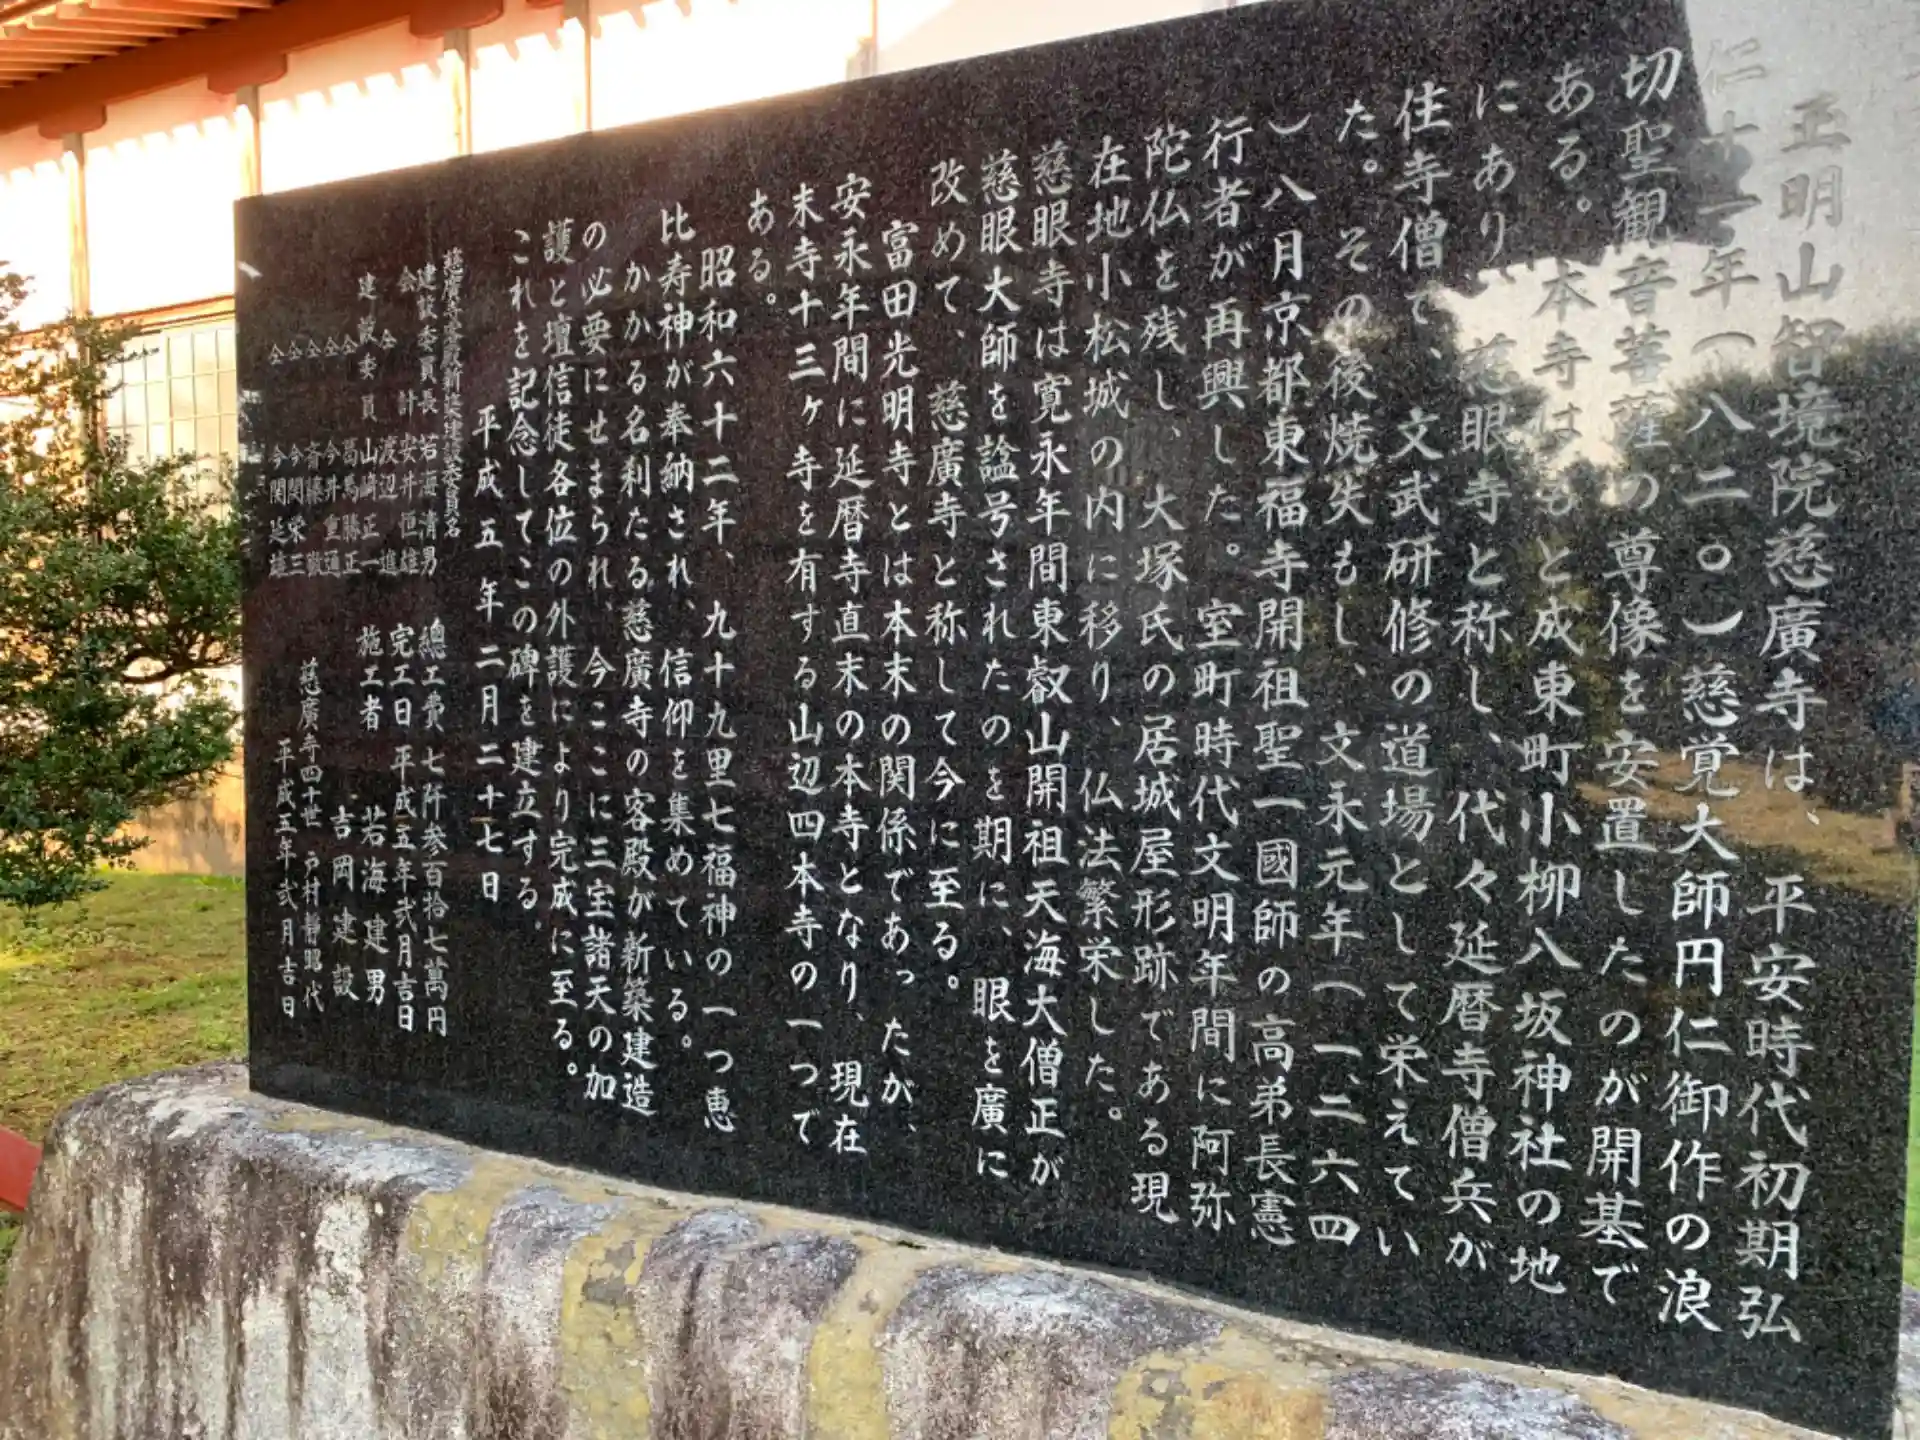 正明山智境院慈廣寺は、平安時代初期弘
仁十一年(八二〇)慈覚大師円仁御作の浪
切聖観音菩薩の尊像を安置したのが開基で
ある。本寺はもと成東町小柳八坂神社の地
にあり、慈眼寺と称し、代々延暦寺僧兵が
住寺僧で、文武研修の道場として栄えてい
た。その後焼失もし、文永元年(一、二六四
)八月京都東福寺開祖聖一國師の高弟長憲
行者が再興した。室町時代文明年間に阿弥
陀仏を残し、大塚氏の居城屋形跡である現
在地小松城の内に移り、仏法繁栄した。
慈眼寺は寛永年間東叡山開祖天海大僧正が
慈眼大師を諡号されたのを期に、眼を廣に
改めて、慈廣寺と称して今に至る。
富田光明寺とは本末の関係であったが、
安永年間に延暦寺直末の本寺となり、現在
末寺十三ヶ寺を有する山辺四本寺の一つで
ある。
昭和六十二年、九十九里七福神の一つ恵
比寿神が奉納され、信仰を集めている。
かかる名利たる慈廣寺の客殿が新築建造
の必要にせまられ、今ここに三宝諸天の加
護と壇信徒各位の外護により完成に至る。
これを記念してこの碑を建立する。
平成五年二月二十七日
慈廣寺客殿新築建設委員名
建設委員長 若海清男
会計 安井恒雄
仝 渡辺進
建設委員 山崎正一
仝 葛馬勝正
仝 今井重通
仝 斉藤嶽
仝 今関栄三
仝 今関延雄
總工費 七阡参百拾七萬円
完工日 平成五年弐月吉日
施工者 若海建男
吉岡建設
慈廣寺四十世 戸村静昭代
平成五年弐月吉日